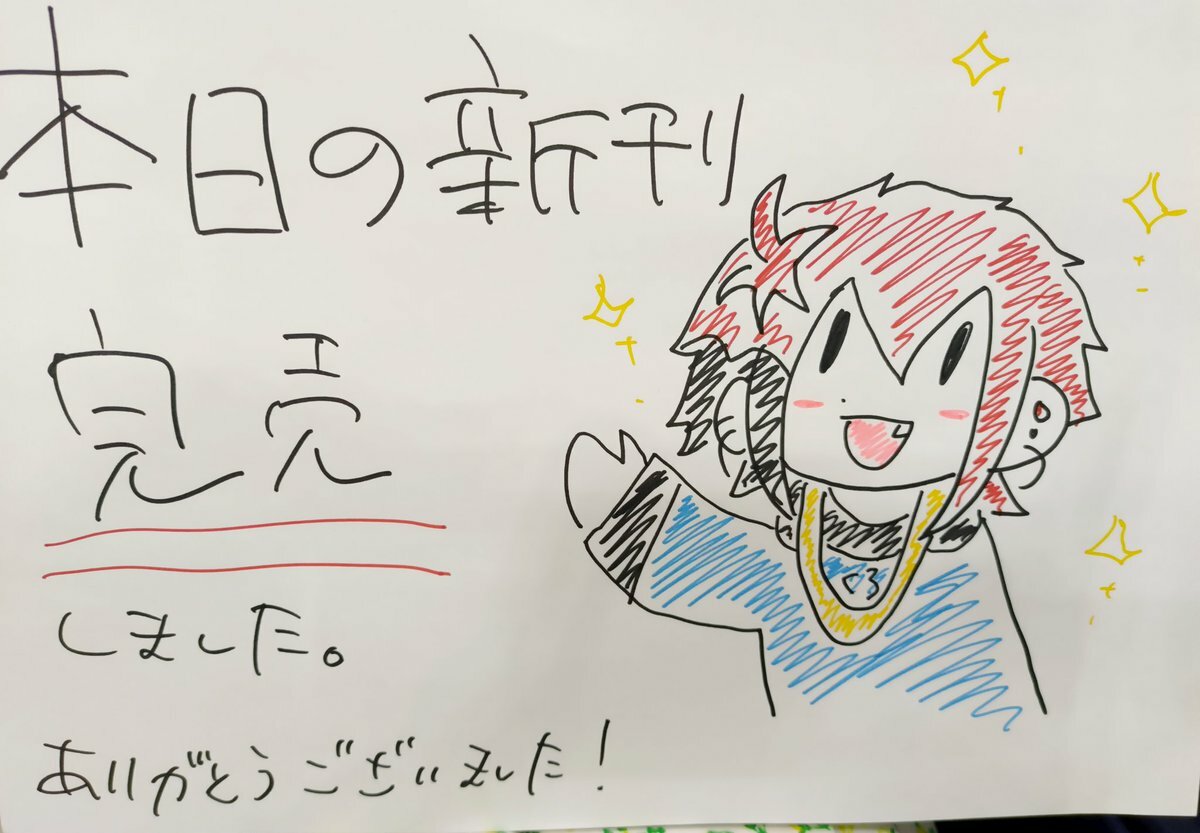 本日の新刊
完売
しました。
ありがとうございました!
くろ